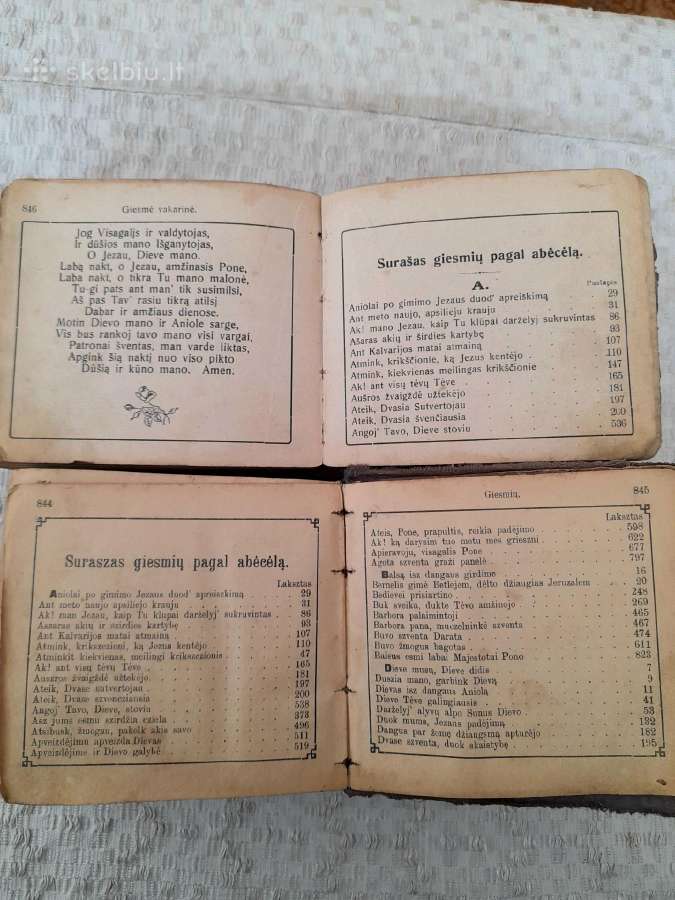 skelbiu.lt
846 Giesmė vakarinė.
Jog Visagalįs ir valdytojas,
Ir dūšios mano Išganytojas,
O Jezau, Dieve mano.
Labą nakt, o Jezau, amžinasis Pone,
Laba nakt, o tikra Tu mano malonė,
Tu-gi pats ant man' tik susimilsi,
Aš pas Tav' rasiu tikrą atilsį
Dabar ir amžiaus dienose.
Motin Dievo mano ir Aniole sarge,
Vis bus rankoj tavo mano visi vargai,
Patronai šventas, man varde liktas,
Apgink šią naktį nuo viso pikto
Dūšią ir kūno mano. Amen.
Surašas giesmių pagal abėcėlą.
A.
Puslapes
Aniolai po gimimo Jezaus duod' apreiškimą 29
Ant meto naujo, apsiliejo kraujo 31
Ak! mano Jezau, kaip Tu klupai darželyj sukruvintas 86
Ašaras akių ir širdies kartybę 93
Ant Kalvarijos matai atmainą 107
Atmink, krikščionie, ką Jezus kentėjo 110
Atmink, kiekvienas meilingas krikščionie 147
Ak! ant visų tėvų Tėve 165
Aušros žvaigždė užtekėjo 181
Ateik, Dvasia Sutvertojau 197
Ateik, Dvasia švenčiausia 200
Angoj' Tavo, Dieve stoviu 536
844
Suraszas giesmių pagal abėcėlą.
Laksztas
Aniolai po gimimo Jezaus duod' apreiszkimą 29
Ant meto naujo apsiliejo krauju 31
Ak! man Jezau, kaip Tu klupai darželyj' sukruvintas 86
Aszaras akiu ir szirdies kartybę 93
Ant Kalvarijos matai atmainą 107
Atmink, krikszezioni, ką Jezus kentėjo 110
Atminkit kiekvienas, meilingi krikszezionis 47
Ak! ant visų tėvų Tėve 165
Auszros žvaigždė užtekėjo 181
Ateik, Dvase sutvertojau 197
Ateik, Dvasia szvencziausia 200
Angoj' Tavo, Dieve, stoviu 538
Asz jums esmu szirdžia cziela 373
Atsibusk, žmogau, pakolk akis savo 496
Apveizdėjimu apveizda Dievas 511
Apveizdėjime ir Dievo galybė 519
Giesmių. 845
Laksztas
Ateis, Pone, prapultis, reikia padėjimo 598
Ak! ką darysim tuo motu mes grieszni 622
Apieravoju, visagalis Pone 677
Agota szventa graži panelė 797
Balsą isz dangaus girdime 16
Bernelis gimė Betlejem, dėlto džiaugsias Jeruzalem 20
Bedievei prisiartino 248
Buk sveika, dukte Tėvo amžinojo 269
Barbora palaimintoji 465
Barbora pana, muczelninkė szventa 467
Buvo szventa Darata 474
Buvo žmogus bagotas 611
Baisus esmi labai Majestotai Pono 823
Dieve musų, Dieve didis 7
Duszia mano, garbink Dievą 9
Dievas isz dangaus Aniolą 11
Dieve Tėve galingiausis 41
Darželyj' alyvu alpo Sunus Dievo 53
Duok mums, Jezaus padėjimą 132
Dangus par žemę džiaugsmą aptarėjo 182
Dvase szventa, duok akaistybę 195